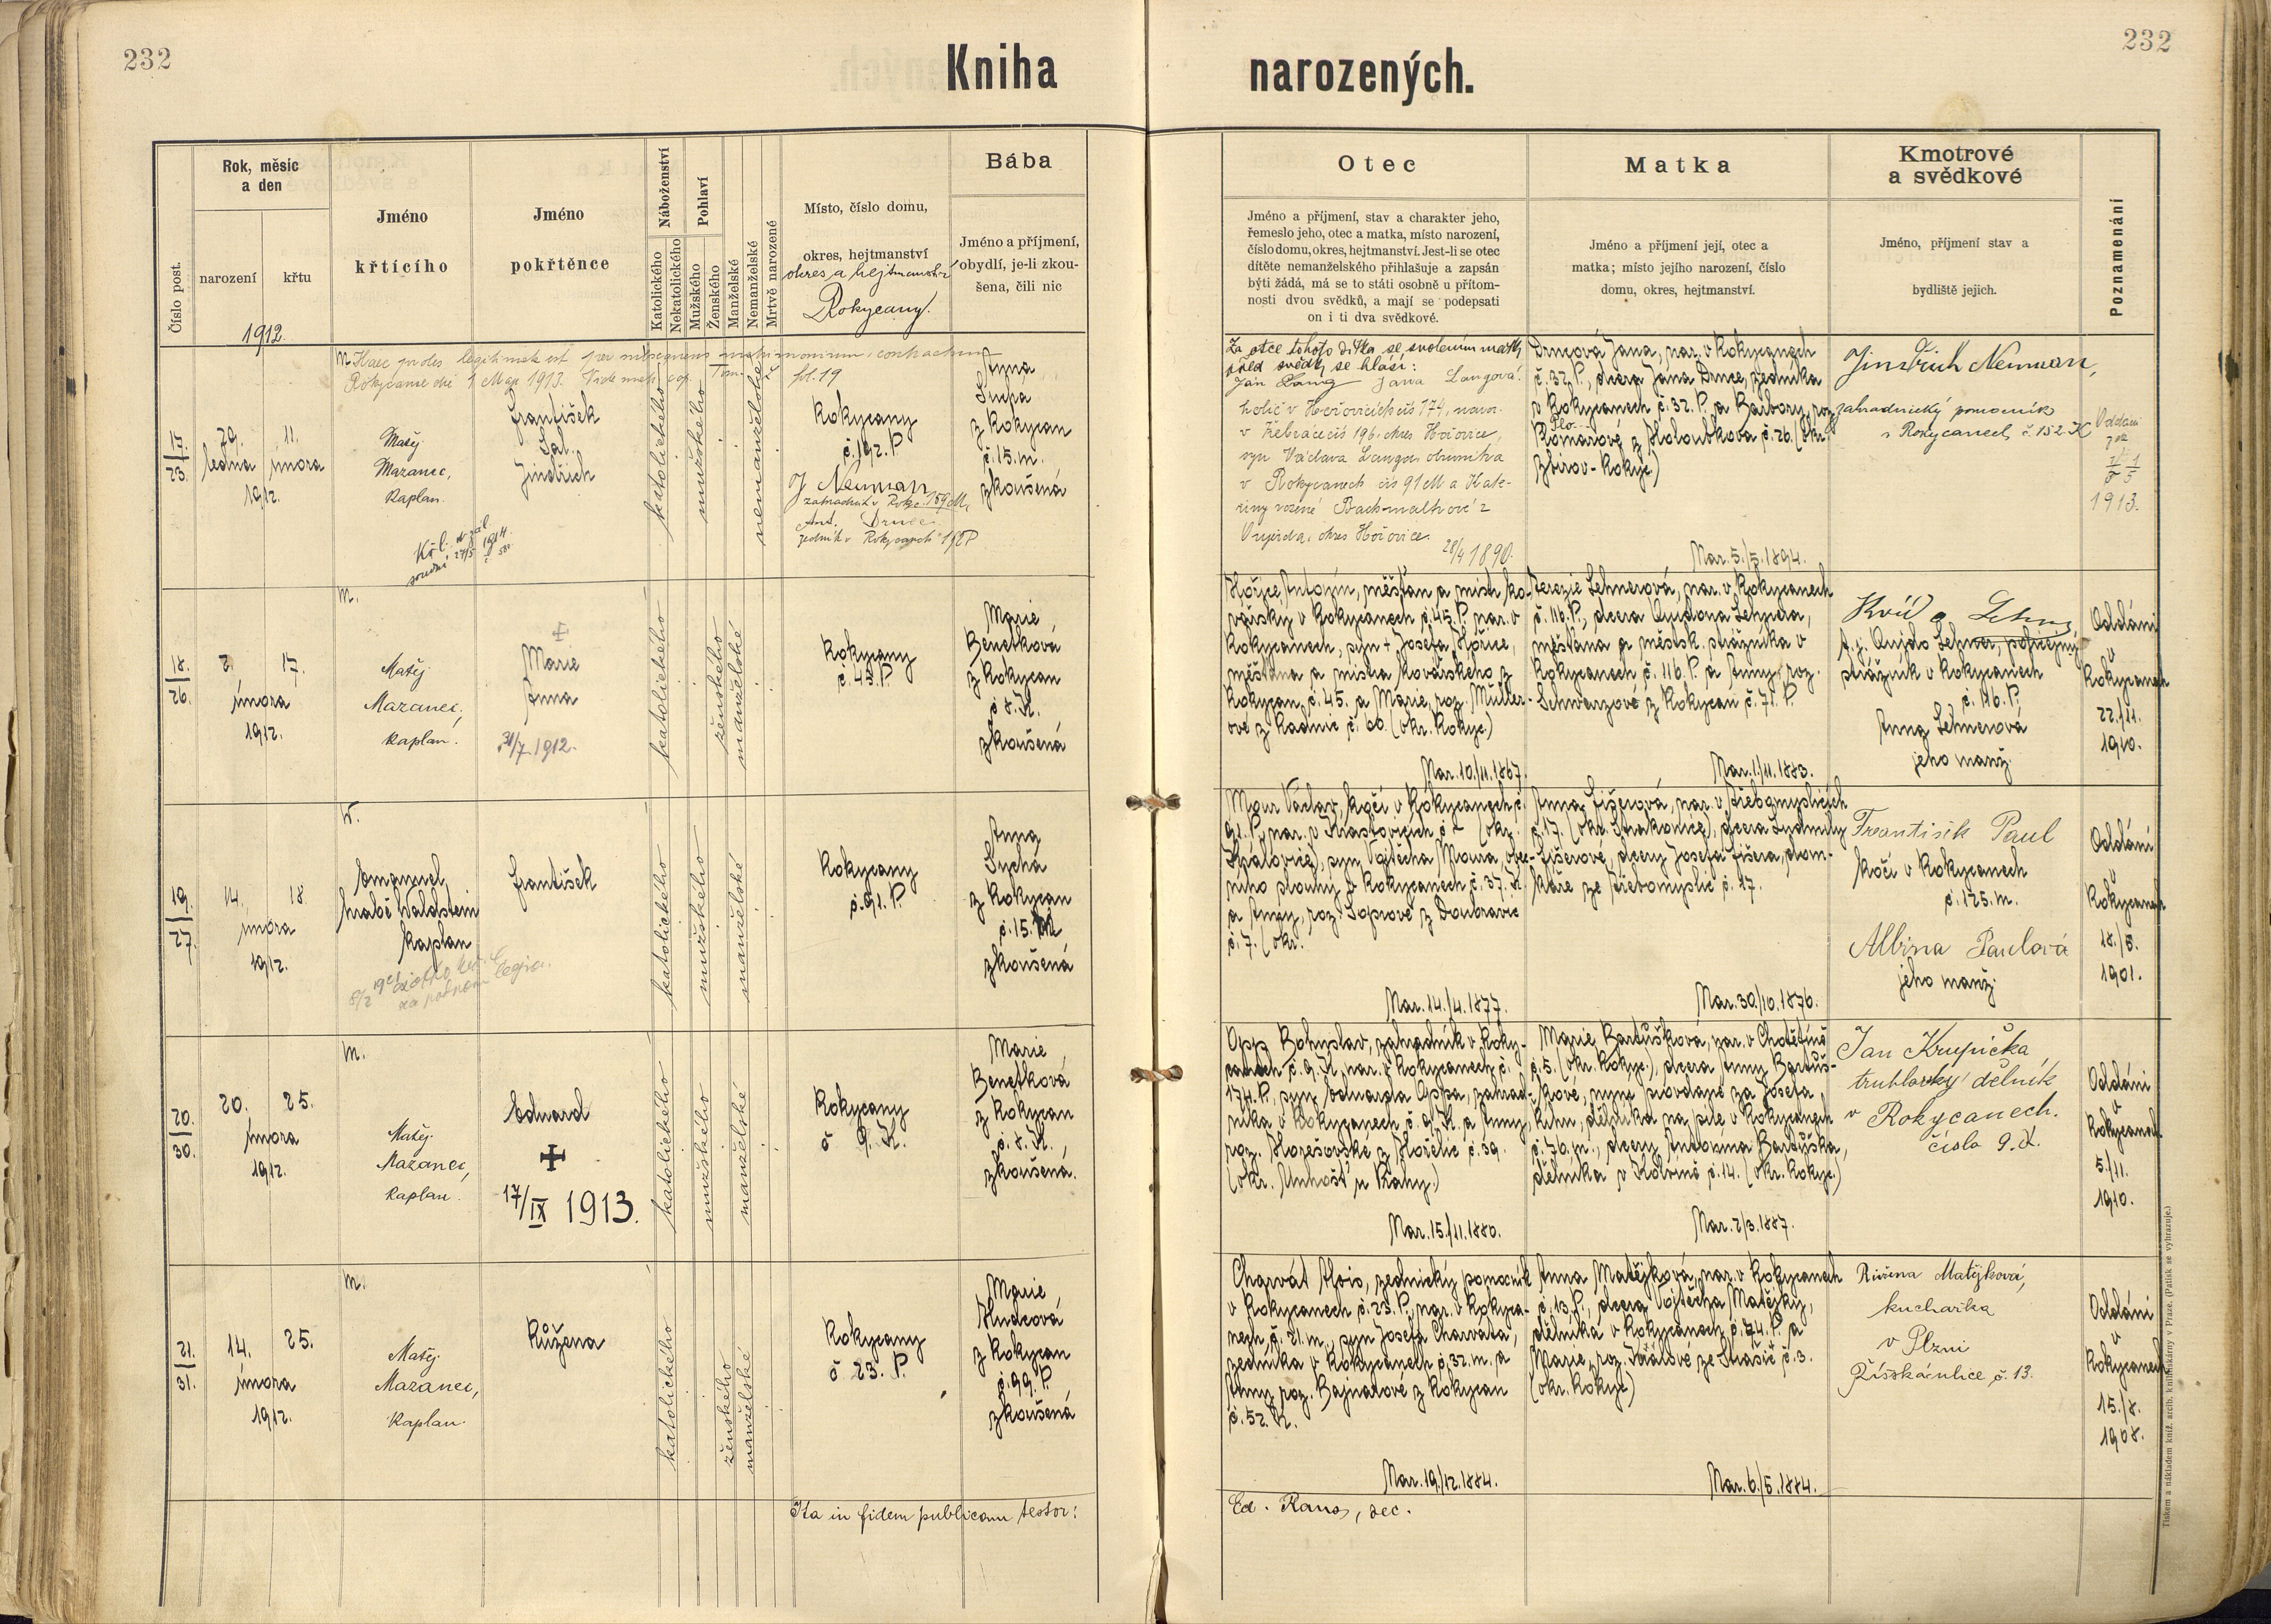 232
232
Kniha narozených.
Číslo post.
Rok, měsíc
a den
narození
křtu
1912.
Jméno
křtícího
Jméno
pokřtěnce
Náboženství
Katolického
Nekatolického
Pohlaví
Mužského
Ženského
Manželské
Nemanželské
Mrtvě narozené
Místo, číslo domu,
okres, hejtmanství
okres a hejtmanství
Rokycany.
Bába
Jméno a příjmení,
obydlí, je-li zkou-
šena, čili nic
Otec
Jméno a příjmení, stav a charakter jeho,
řemeslo jeho, otec a matka, místo narození,
číslo domu, okres, hejtmanství. Jest-li se otec
dítěte nemanželského přihlašuje a zapsán
býti žádá, má se to státi osobně u přítom-
nosti dvou svědků, a mají se podepsati
on i ti dva svědkové.
Matka
Jméno a příjmení její, otec a
matka; místo jejího narození, číslo
domu, okres, hejtmanství.
Kmotrové
a svědkové
Jméno, příjmení stav a
bydliště jejich.
Poznamenání
Haec proles legitimata est per subsequens matrimonium contractum
Rokycanae die 1 Maji 1913. Vide matr. cop. Tom. fol. 19
17.
23.
29.
ledna
1912.
11.
února
Matěj
Mazanec,
kaplan.
František
Sal.
Jindřich
katolického
mužského
nemanželské
Rokycany
č. 192. P
J Neuman
zahradník v Rokyc. 159 M,
Ant. Drnec
zedník v Rokycanech 192 P
Anna
Suchá
z Rokycan
č. 15. m.
zkoušená
Za otce tohoto dítka se svolením matky
před svědky se hlásí:
Jan Lang Jana Langová.
holič v Hořovicích čís 174, naroz.
v Žebráce čís 196. okres Hořovice,
syn Václava Langa, obuvníka
v Rokycanech čís 91 M a Kate-
řiny rozené
okres Hořovice.
28/4 1890.
Drncová Jana, nar. v Rokycanech
č. 32. P., dcera Jána Drnce, zedníka
v Rokycanech č. 32. P. a Barbory, roz.
z Holoubkova č. 26. (okr.
Zbirov-Rokyc.)
Nar. 5./5. 1894.
Jindřich Neuman,
zahradnický pomocník
v Rokycanech, č. 152. K
Oddáni
1913.
m.
18.
26.
2.
února
1912.
17.
Matěj
Mazanec,
kaplan.
Marie
Anna
31/7. 1912.
katolického
ženského
manželské
Rokycany
č. 45. P.
Marie
Benetková
z Rokycan
č. 8. K.
zkoušená
Hořice Antonín, měšťan a mistr ko-
vářský v Rokycanech č. 45. P. nar. v
Rokycanech, syn + Josefa Hořice,
měšťana a mistra kovářského z
Rokycan, č. 45. a Marie, roz. Müller-
ové z Radnic č. 60. (okr. Rokyc.)
Nar. 10./11. 1867.
Terezie Lehnerová, nar. v Rokycanech
č. 116. P., dcera Quidona Lehnera,
měšťana a městsk. strážníka v
Rokycanech č. 116. P. a Anny, roz.
Schwarzové z Rokycan č. 71. P.
Nar. 1./11. 1883.
t. j. Quido Lehner, policejný
strážník v Rokycanech
č. 116. P.
Anna Lehnerová
jeho manž.
Oddáni
v
Rokycanech
22./11.
1910.
W.
19.
27.
14.
února
1912.
18.
Emanuel
hrabě Waldstein
kaplan
František
katolického
mužského
manželské
Rokycany
č. 91. P.
Anna
Suchá
z Rokycan
č. 15. M
zkoušená
Mour Václav, kočí v Rokycanech č.
91. P., nar. v Hvastovicích č - (okr.
Královice), syn Vojtěcha Moura, obec-
ního slouhy v Rokycanech č. 37. K.
a Anny, roz. Šopové z Doubravic
č. 7. (okr.
Nar. 14./4. 1877.
Anna Fišerová, nar. v Třebomyslicích
č. 17. (okr. Strakonice), dcera Ludmily
Fišerové, dcery Josefa Fišera, dom-
káře ze Třebomyslic č. 17.
Nar. 30/10. 1876.
František Paul
kočí v Rokycanech
č. 125. m.
Albina Paulová
jeho manž.
Oddáni
v
Rokycanech
18./5.
1901.
m.
20.
30.
20.
února
1912.
25.
Matěj
Mazanec,
kaplan.
Eduard
17/IX 1913.
katolického
mužského
manželské
Rokycany
č 9. K.
Marie
Benetková
z Rokycan
č. 8. K.
zkoušená.
Opp Bohuslav, zahradník v Roky-
canech č. 9. K, nar. v Rokycanech č.
174. P., syn Eduarda Oppa, zahrad-
níka v Rokycanech č. 9. K. a Anny,
roz. Horešovské z Hořelic č. 39.
(okr. Unhošť u Prahy.)
Nar. 15./11. 1880.
Marie Bartušková, nar. v Chotětíně
č. 5. (okr. Rokyc.), dcera Anny Bartuš-
kové, nyní provdané za Josefa
dělníka na pile v Rokycanech
č. 76. m., dcery Antonína Bartuška,
dělníka v č. 14. (okr. Rokyc.)
Nar. 2/3. 1887.
Jan Krupička
truhlarský dělník
v Rokycanech.
číslo 9. K.
Oddáni
v
Rokycanech
5./11.
1910.
m.
21.
31.
14.
února
1912.
25.
Matěj
Mazanec,
kaplan.
Růžena
katolického
ženského
manželské
Rokycany
č 23. P.
Marie
Hudcová
z Rokycan
č. 99. P.
zkoušená
Charvát Alois, zednický pomocník
v Rokycanech č. 23. P., nar. v Rokyca-
nech č. 21. m., syn Josefa Charváta,
zedníka v Rokycanech č. 32. m. a
Anny roz. Bajnarové z Rokycan
č. 52. K.
Nar. 19./12. 1884.
Anna Matějková, nar. v Rokycanech
č. 13. P., dcera Vojtěcha Matějky,
dělníka v Rokycanech č. 74. P. a
Marie, roz. Králové ze Strašic č. 3.
(okr. Rokyc)
Nar. 6./5. 1884.
Růžena Matějková,
kuchařka
v Plzni
Říšská ulice č. 13.
Oddáni
v
Rokycanech
15./8.
1908.
Ita in fidem publicam testor:
Ed. Raus, dec.
Tiskem a nákladem kníž. arcib. knihtiskárny v Praze. (Patisk se vyhrazuje.)